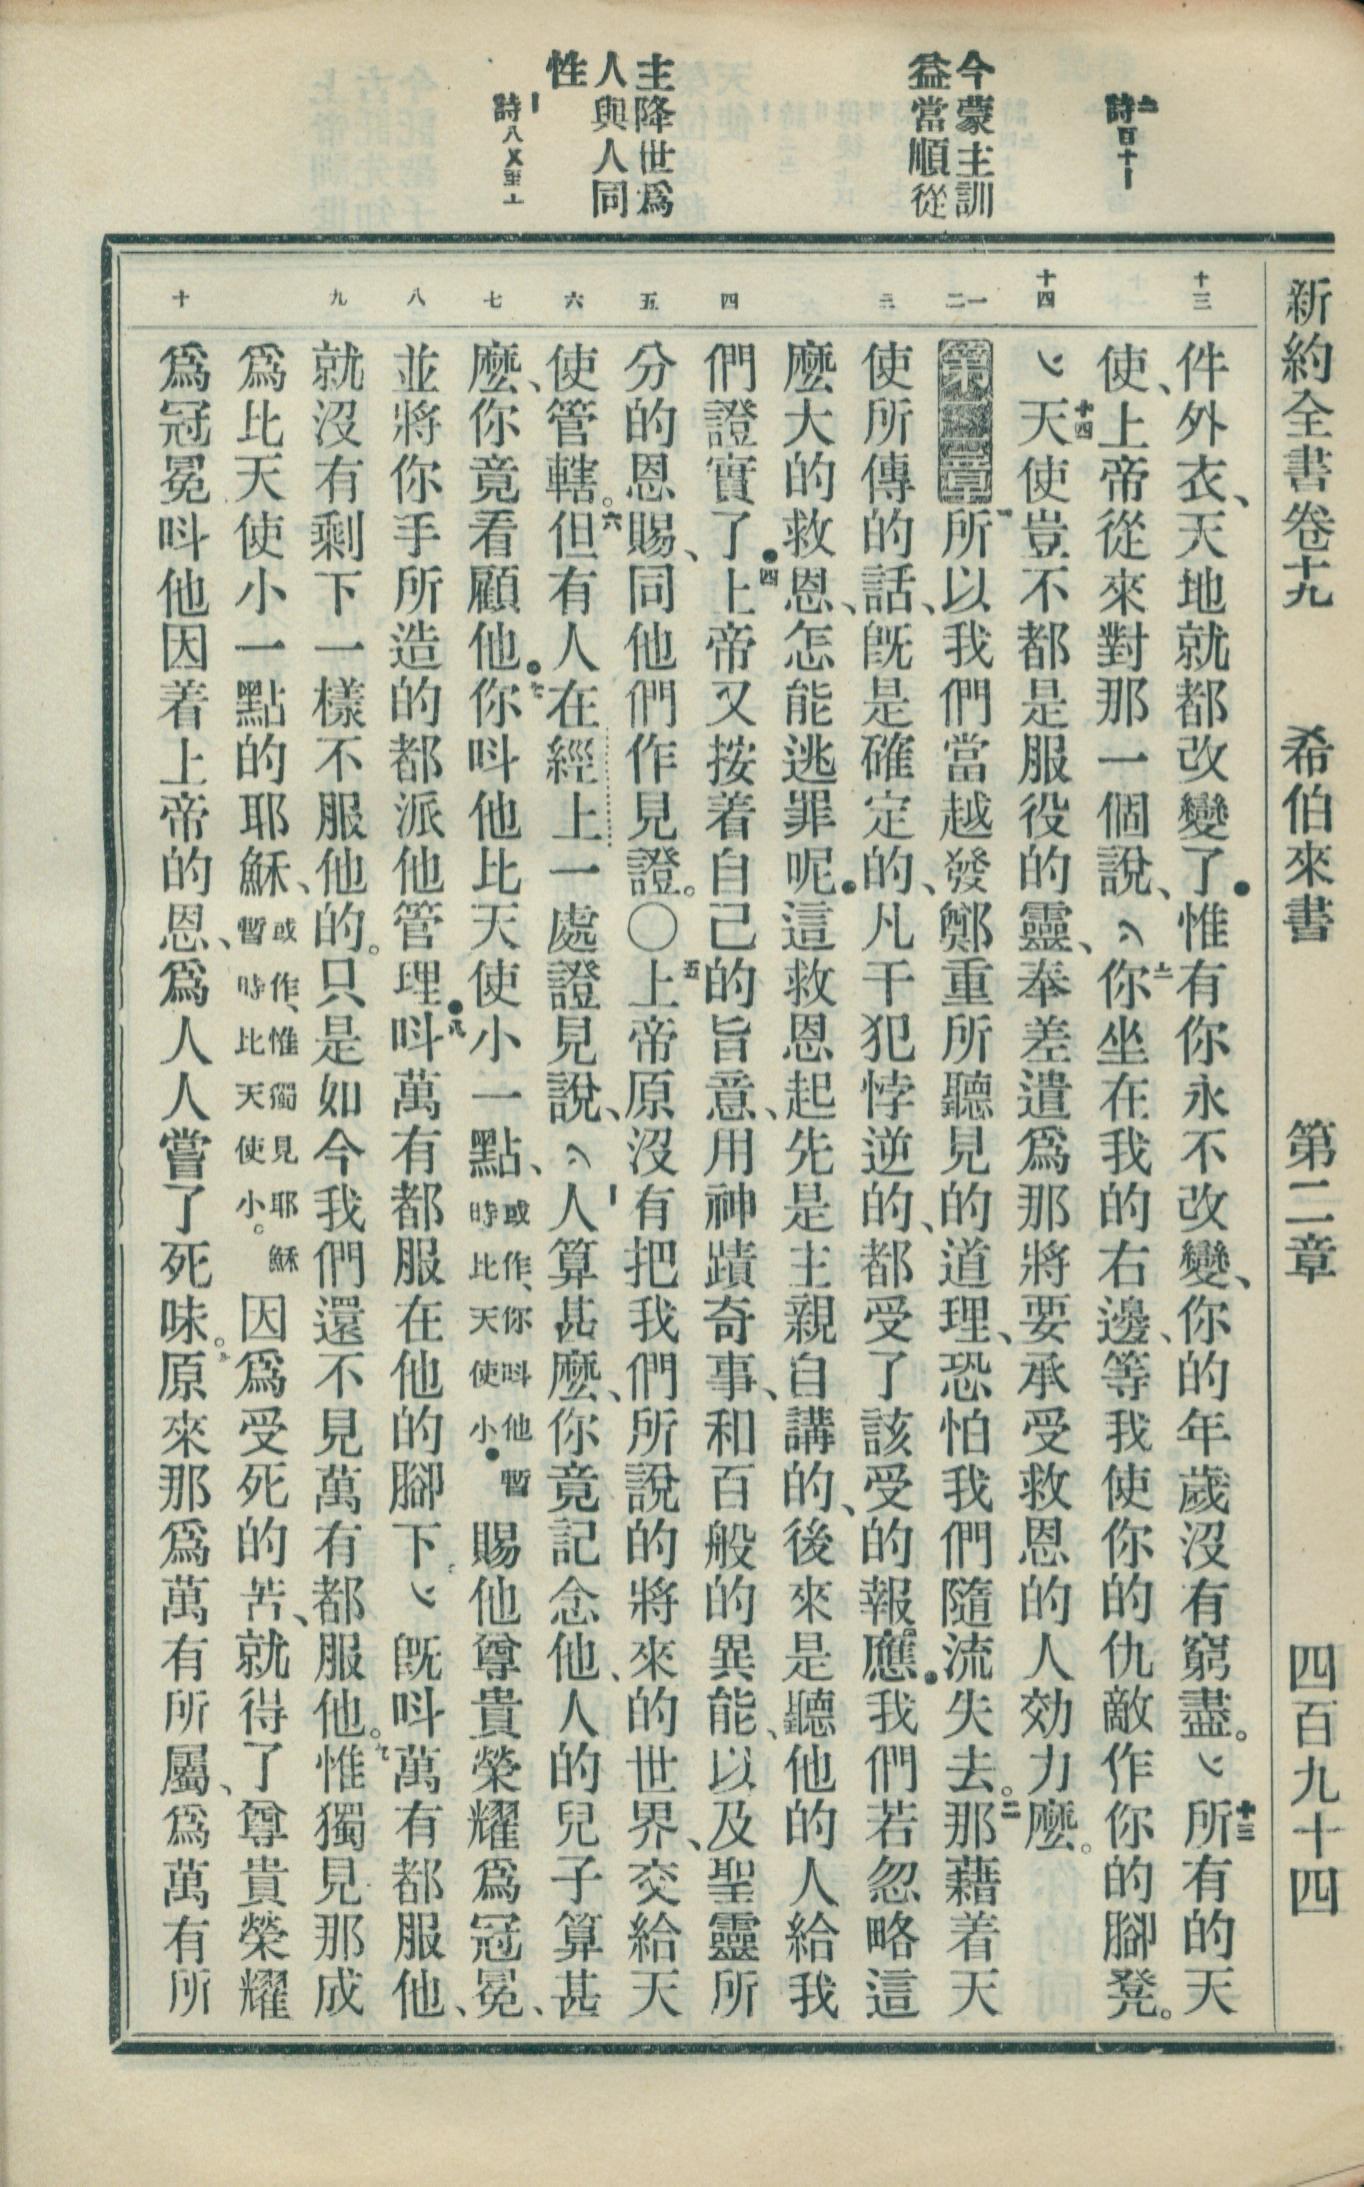 新約全書卷十九 希伯來書 第二章 四百九十四
詩百十一
今蒙主訓
益當順從
主降世爲
人與人同
性
詩八〤至亠
十三
十四
一
二
三
四
五
六
七
八
九
十
件外衣、天地就都改變了•惟有你永不改變、你的年歲沒有窮盡。﹀十三所有的天
使、上帝從來對那一個說、︿你坐在我的右邊、等我使你的仇敵作你的腳凳。
﹀十四天使豈不都是服役的靈、奉差遣爲那將要承受救恩的人効力麼。
第二章一所以我們當越發鄭重所聽見的道理、恐怕我們隨流失去。二那藉着天
使所傳的話、旣是確定的、凡干犯悖逆的、都受了該受的報應•三我們若忽略這
麼大的救恩、怎能逃罪呢•這救恩起先是主親自講的、後來是聽他的人給我
們證實了•四上帝又按着自己的旨意、用神蹟奇事、和百般的異能、以及聖靈所
分的恩賜、同他們作見證。〇五上帝原沒有把我們所說的將來的世界、交給天
使管轄。六但有人在經上一處證見說、︿人算甚麼、你竟記念他、人的兒子算甚
麼、你竟看顧他•七你呌他比天使小一點、或作、你呌他暫時比天使小•賜他尊貴榮耀爲冠冕、
並將你手所造的都派他管理•八呌萬有都服在他的腳下。﹀旣呌萬有都服他、
就沒有剩下一樣不服他的。只是如今我們還不見萬有都服他。九惟獨見那成
爲比天使小一點的耶穌、或作、惟獨見耶穌暫時比天使小。因爲受死的苦、就得了尊貴榮耀
爲冠冕呌他因着上帝的恩、爲人人嘗了死味。十原來那爲萬有所屬、爲萬有所